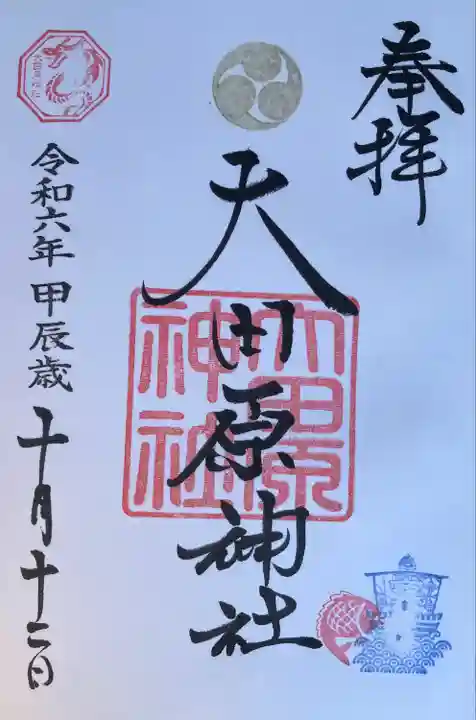 奉拝
大田原神社
大田原
神社
令和六年 甲辰歳 十月十二日